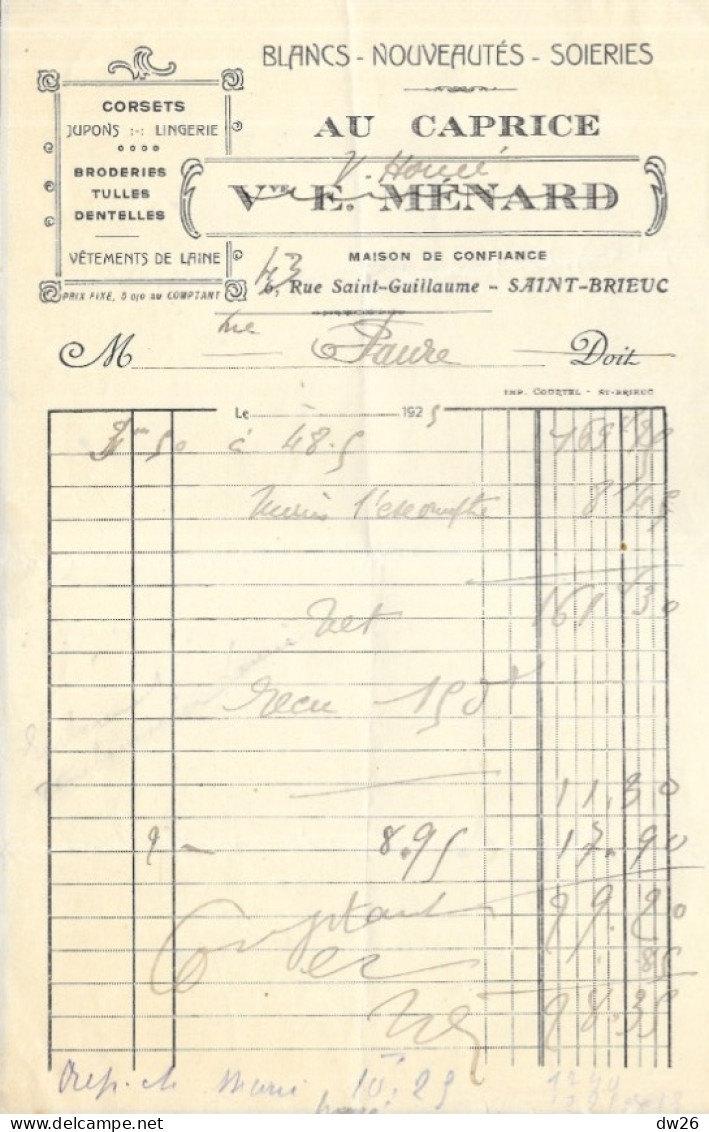 BLANCS - NOUVEAUTÉS - SOIERIES
CORSETS
JUPONS :-: LINGERIE
BRODERIES
TULLES
DENTELLES
VÊTEMENTS DE LAINE
PRIX FIXE, 5 0/0 au COMPTANT
AU CAPRICE
V. Houé
Vve E. MÉNARD
MAISON DE CONFIANCE
43
6, Rue Saint-Guillaume - SAINT-BRIEUC
M me Faure Doit
IMP. COURTEL - ST-BRIEUC
Le 1925
3m 50 à 48.5 169 80
Moins l'escompte 8 45
Net 161 30
recu 150
11.30
2 - 8.95 17.90
Comptant 29.20
85
Net 28.35
10. 25